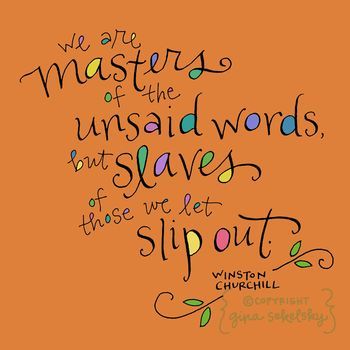 we are
masters
of the
unsaid words,
but slaves
of
those we let
slip out.
WINSTON
CHURCHILL
©COPYRIGHT
gina sekelsky